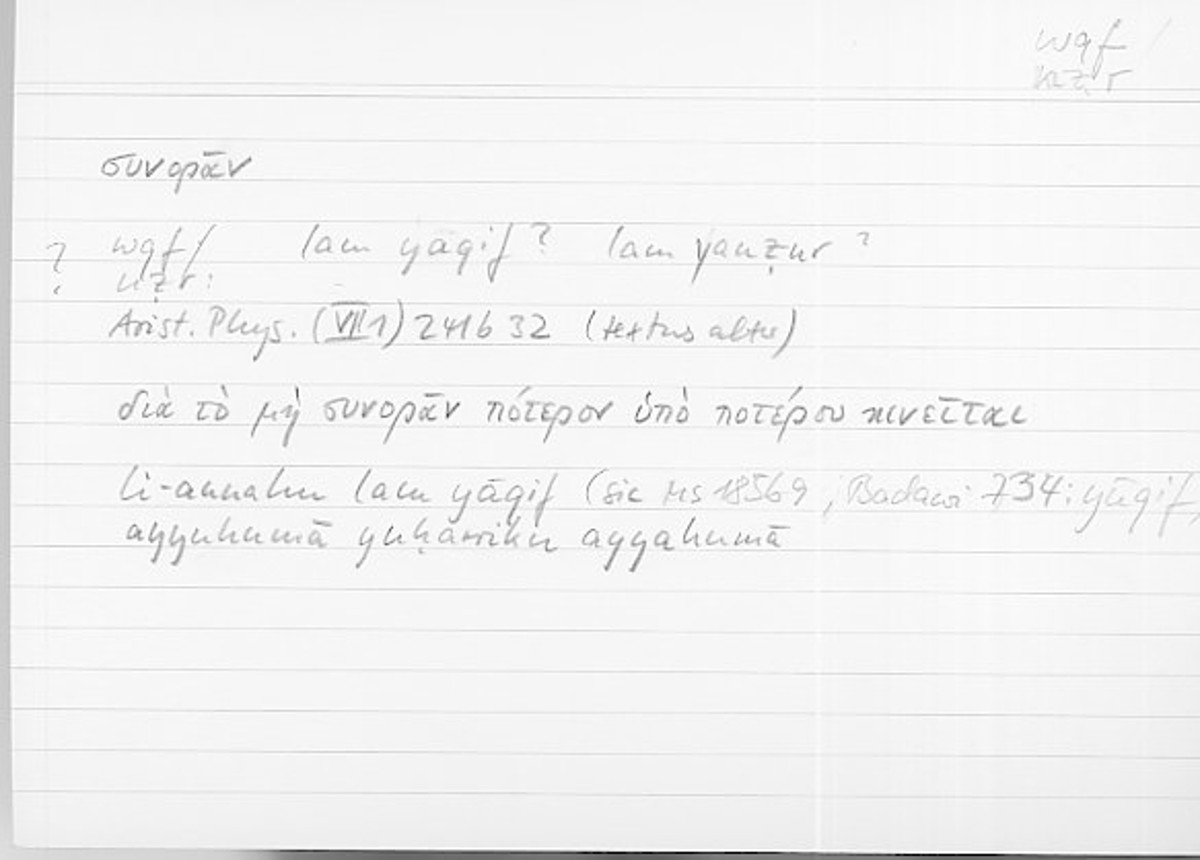 wqf /
nẓr
συνορᾶν
? wqf/ lam yaqif ? lam yanẓur ?
nẓr :
Arist. Phys. (VII 1) 241b 32 (textus alter)
διὰ τὸ μὴ συνορᾶν πότερον ὑπὸ ποτέρου κινεῖται
li-annahu lam yāqif (sic Ms 18569 ; Badawi 734 : yūqif)
ayyuhumā yuḥarriku ayyahumā